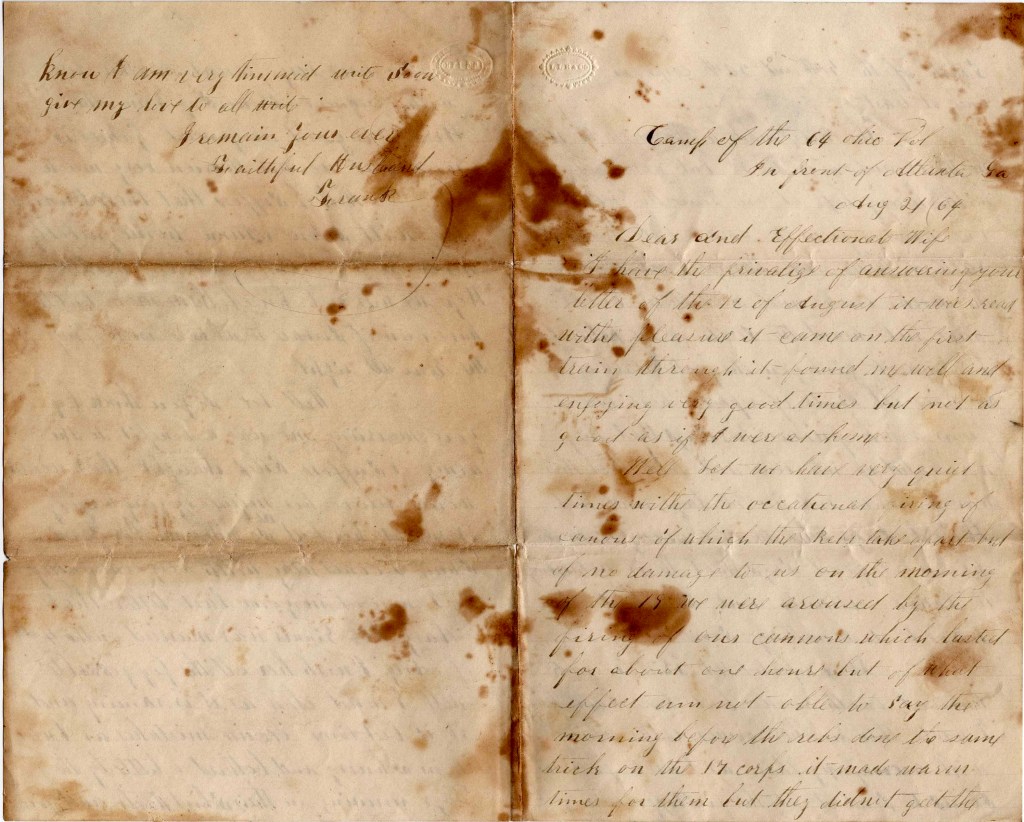 know I am very timmid write soon
give my love to all
I remain your ever
Faithful Husband
Camp of the 64 Ohio Vol
In front of Atlanta Ga
Aug 21/64
Dear and Effectional Wife
I have the privalize of answering your
letter of the 12 of August it was read
withe pleasure it came on the first
train through it found me well and
enjoying very good times but not as
good as if I were at home
Well Lot we have very quiet
times withe the occational firing of
canons of which the Rebs take apart but
of no damage to us on the morning
of the we were aroused by the
firing of our cannons which lasted
for about one hours but of what
effect am not able to say the
morning before the rebs done the same
trick on the 17 corps it mad warm
times for them but they did not get the